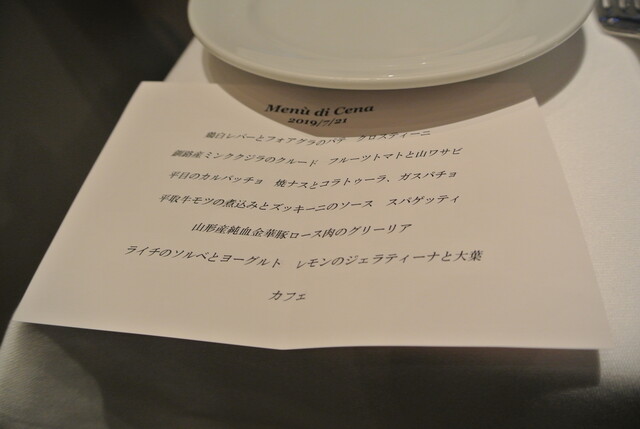 Menù di Cena
2019/7/21
レバーとフォアグラのパテ クロスティーニ
釧路産ミンククジラのクルード フルーツトマトと山ワサビ
平目のカルパッチョ 焼ナスとコラトゥーラ、ガスパチョ
平取牛モツの煮込みとズッキーニのソース スパゲッティ
山形産純血金華豚ロース肉のグリーリア
ライチのソルベとヨーグルト レモンのジェラティーナと大葉
カフェ